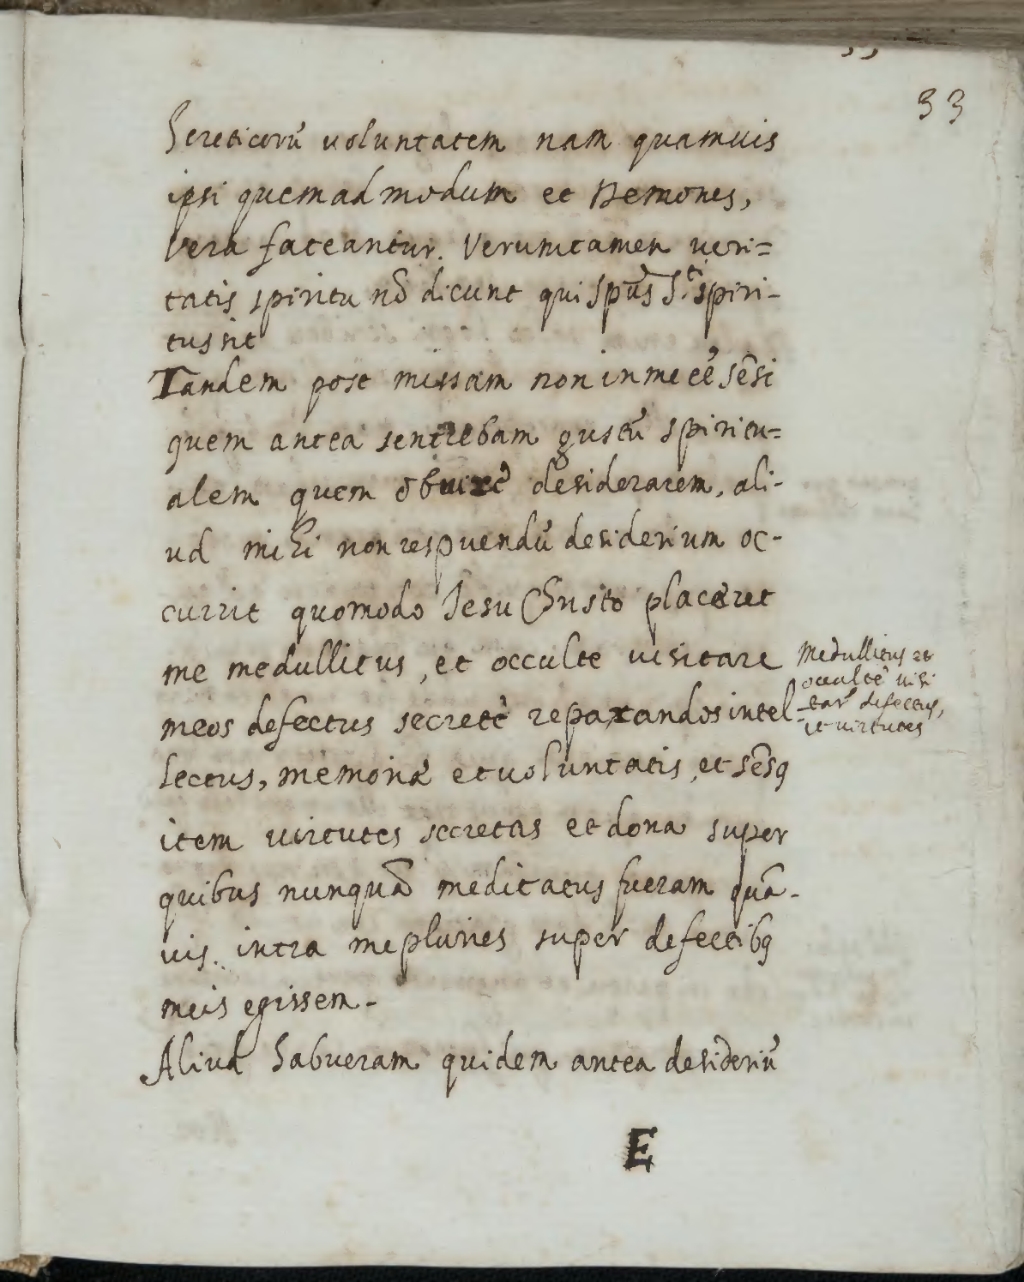 33
hereticorũ voluntatem nam quamuis
ipsi quemadmodum et Demones,
vera fateantur. Verumtamen veri=
tatis spiritu nõ dicunt qui spũs S.ti spiri-
tus sit
Tandem post missam non in me eẽ sẽsi
quem antea sentiebam gustũ spiritu=
alem quem desiderarem, ali-
ud mihi non respuendũ desiderium oc-
currit quomodo Iesu Christo placeret
me medullitus, et occulte visitare
meos defectus secretè reparandos intel=
lectus, memoriæ et voluntatis, et sẽsq
item virtutes secretas et dona super
quibus nunquã meditatus fueram quã-
uis intra me pluries super defectibq
meis egissem-
Aliud habueram quidem antea desideriũ
E
Medullitus et
occultè visi
tari defectus,
et virtutes